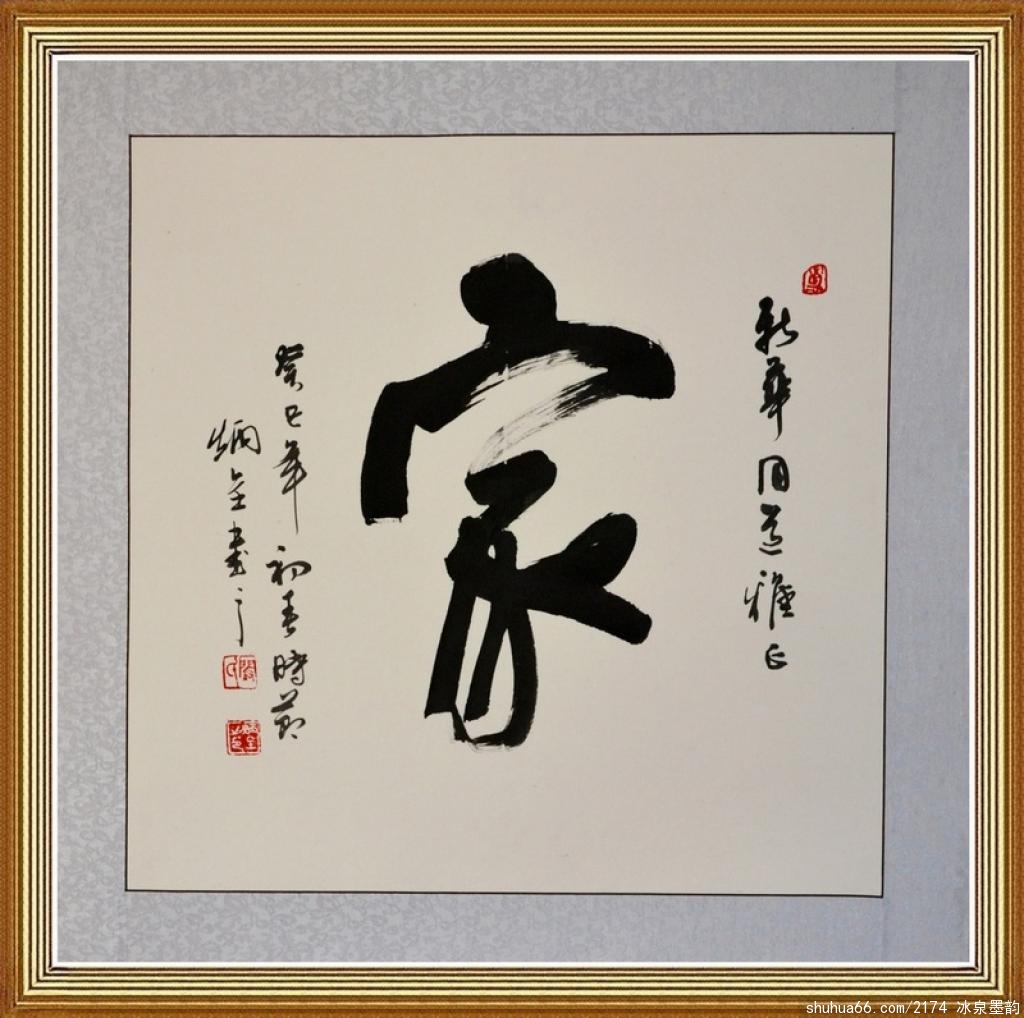 新華同道雅正
家
癸巳年初春時節
炳全書之
shuhua66.com/2174 冰泉墨韵